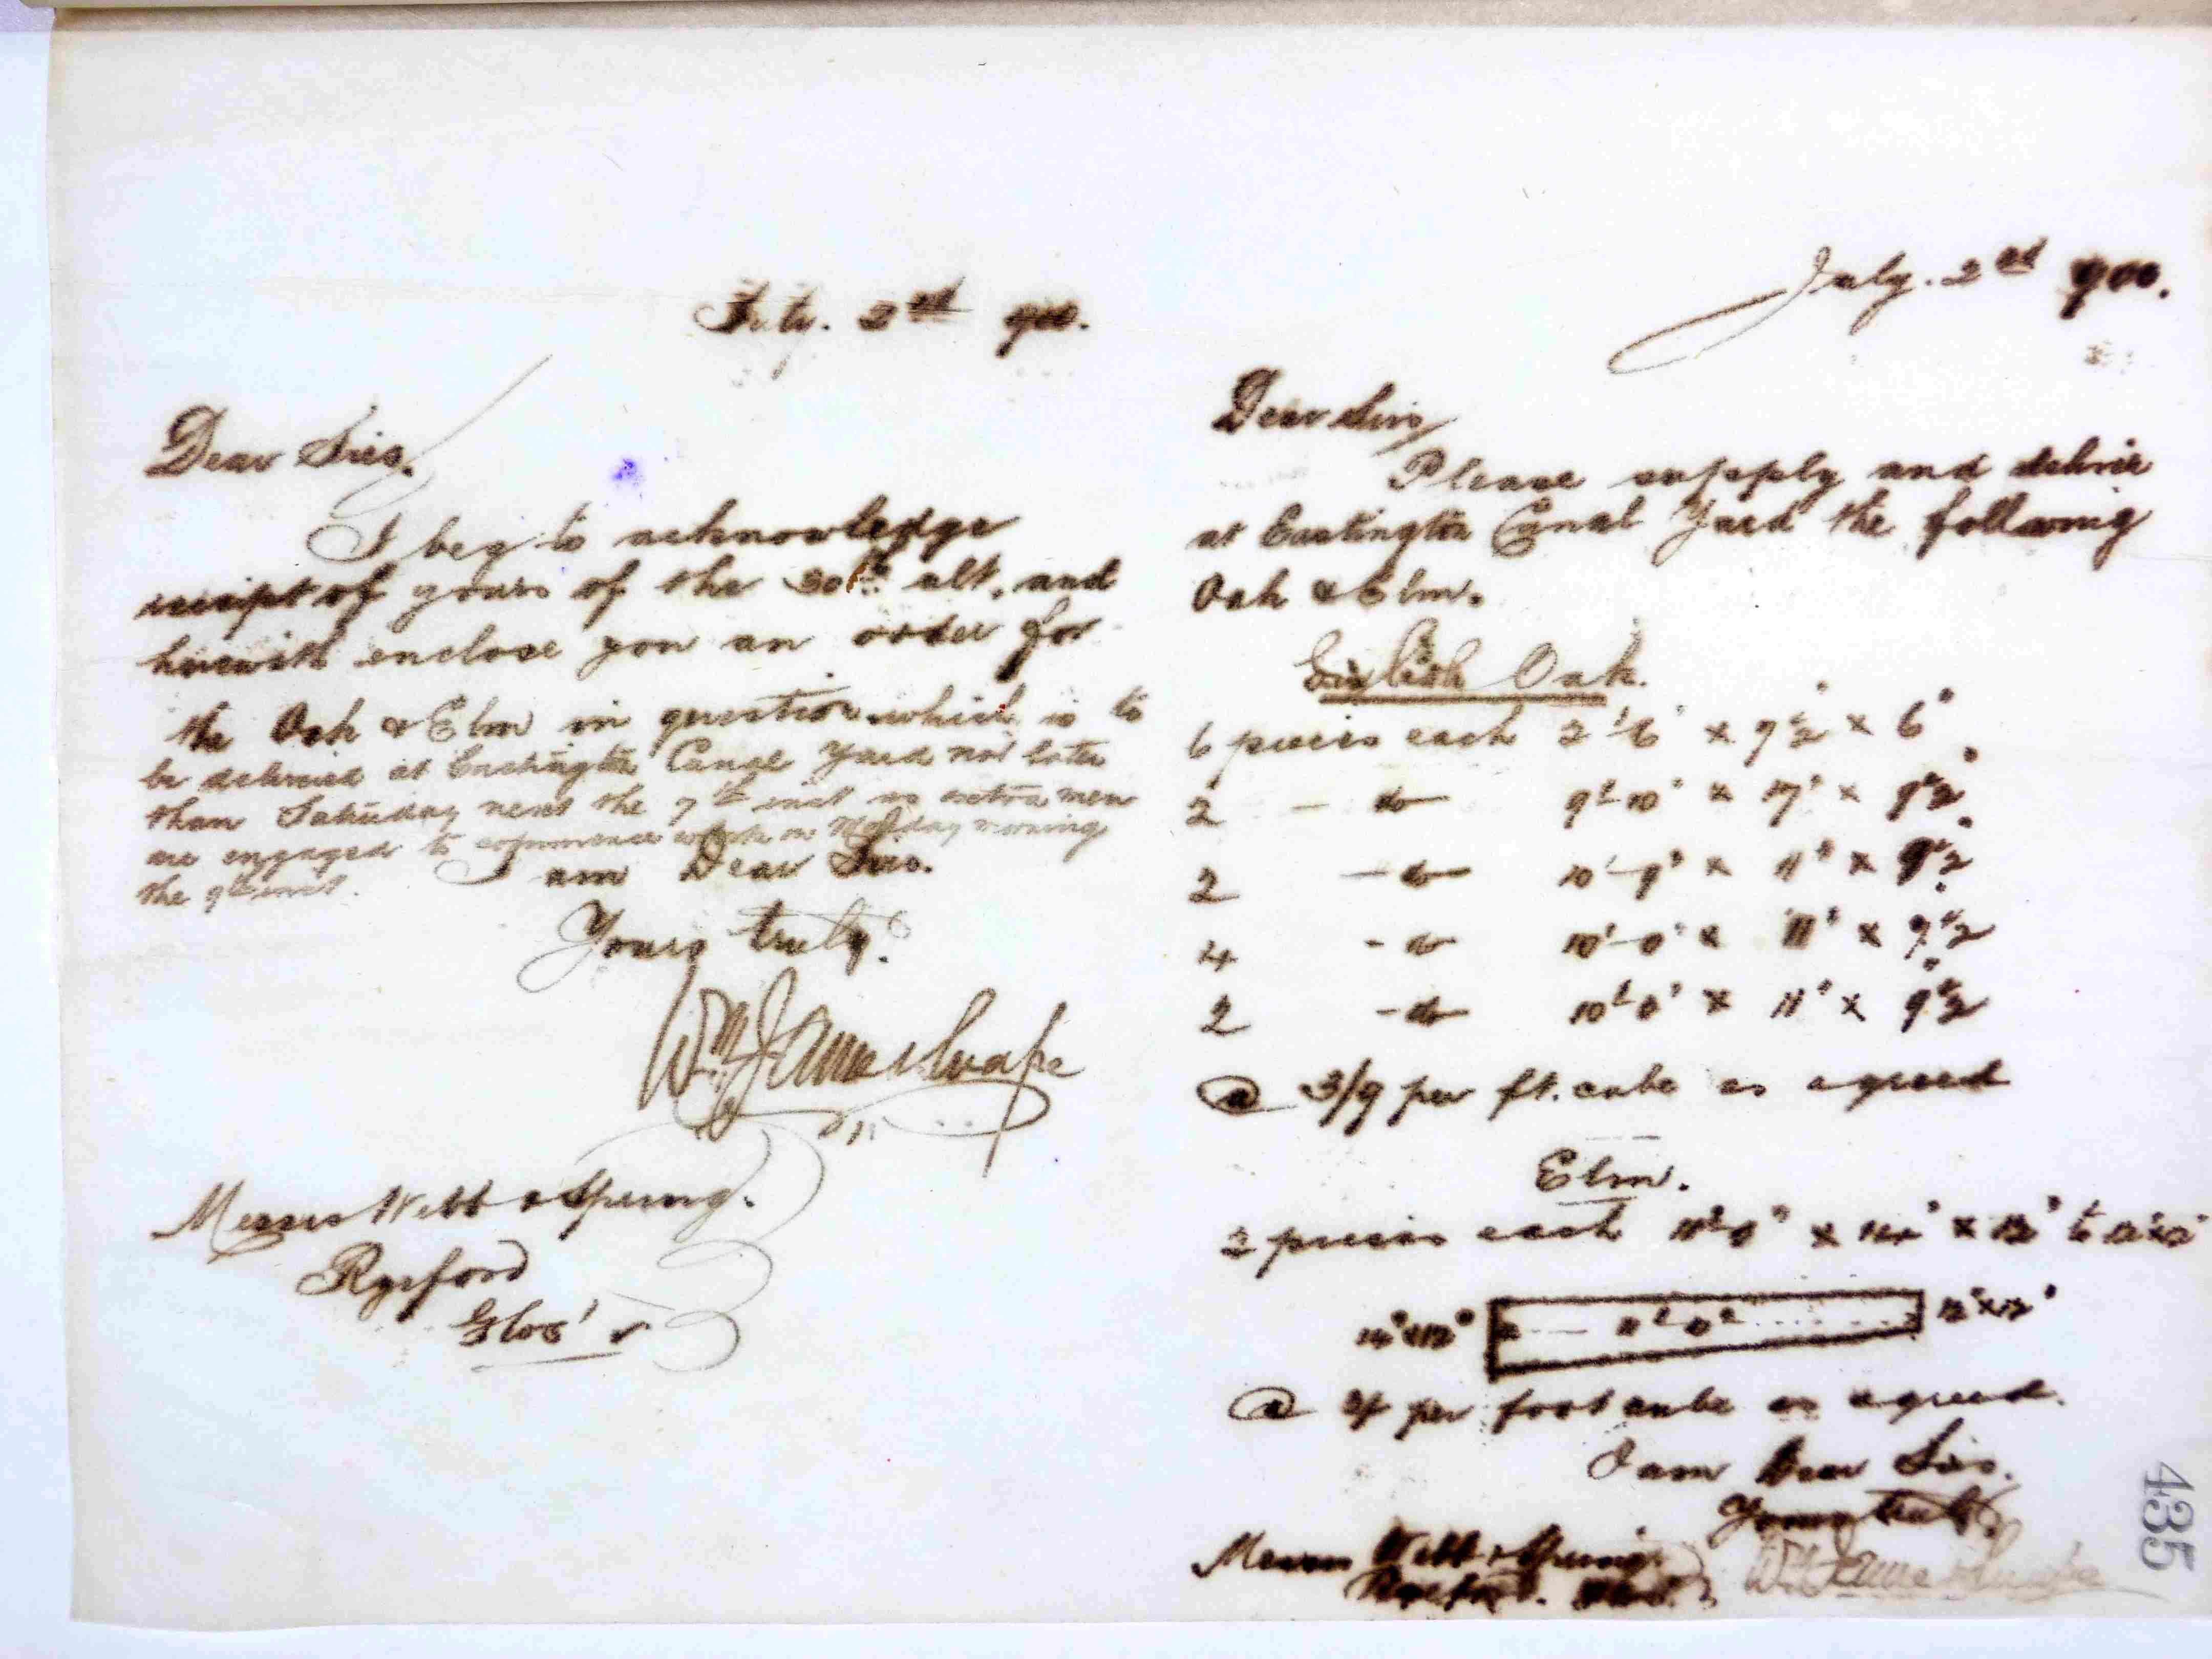 July. 2nd 900.
Dear Sirs,
I beg to acknowledge
receipt of yours of the 30th ult. and
herewith enclose you an order for
the Oak & Elm in question which is to
be delivered at Eastington Canal Yard not later
than Saturday next the 7th inst as extra men
are engaged to commence work on Monday morning
the 9th inst. I am Dear Sirs.
Yours truly.
Wm. James Snape
Messrs Webb & Spring.
Ryeford
Glos'r
July. 2nd 900.
Dear Sirs,
Please supply and deliver
at Eastington Canal Yard the following
Oak & Elm.
English Oak.
6 pieces each 2'-6" x 7½" x 6"
2 - do 9'-10" x x 9½"
2 - do 10'-9" x 11" x 9½"
4 - do 10'-0" x 11" x 9½"
2 - do 10'-0" x 11" x 9½"
@ 3/9 per ft. cube as agreed
Elm.
2 pieces each 11'-0" x 14" x 12" to 12"x12"
14"x12" 11'-0" 12"x12"
@ per foot cube as agreed.
I am Dear Sirs.
Yours truly.
Messrs Webb & Spring
Wm. James Snape
Ryeford. Glos.
435